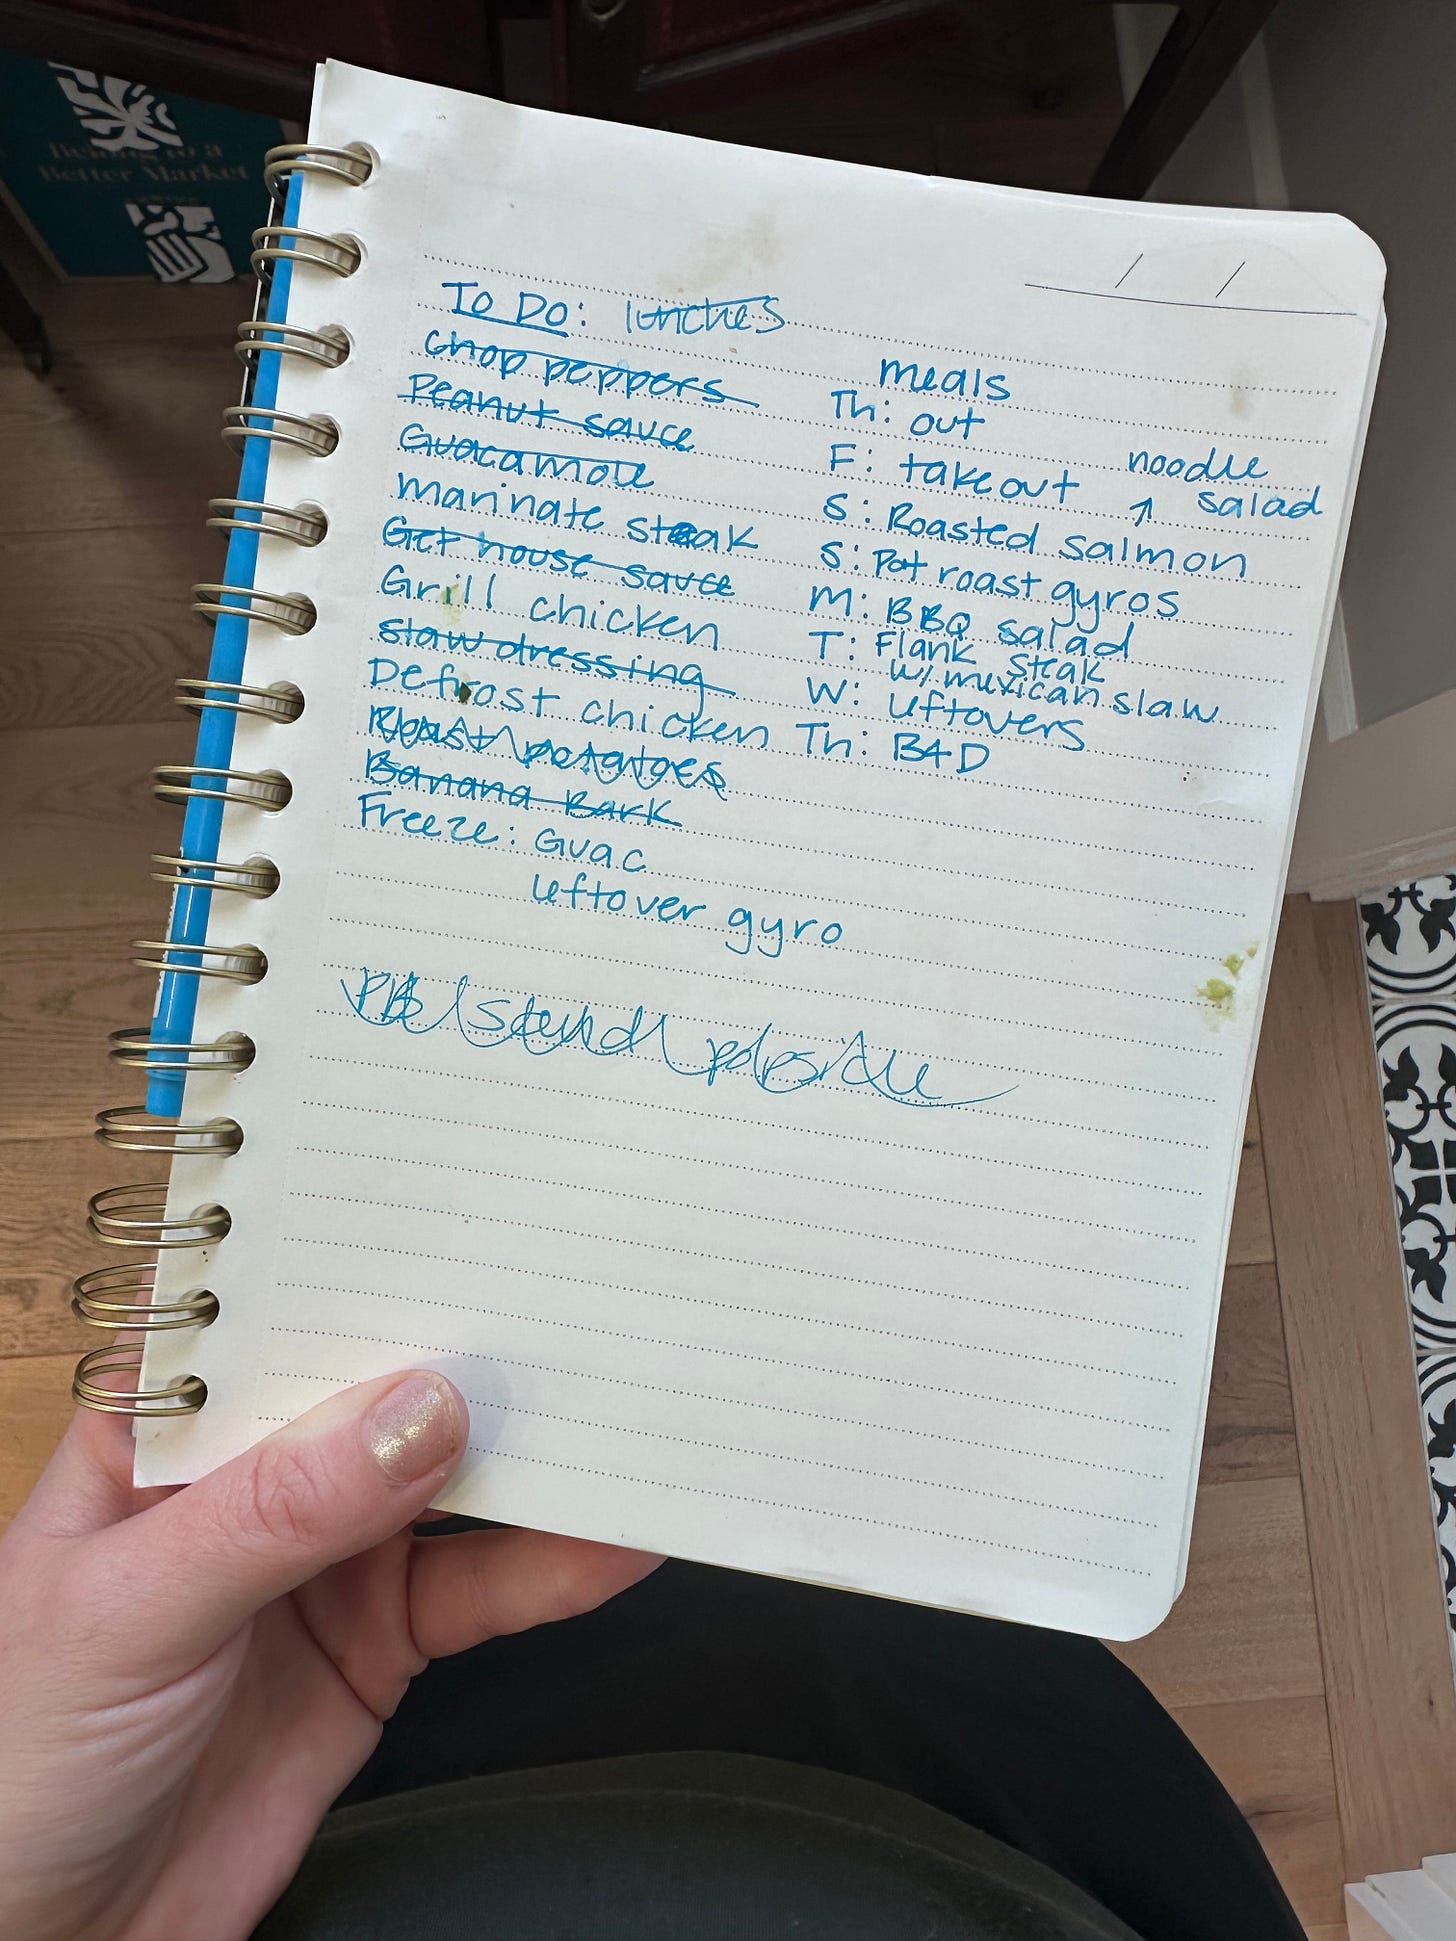 Belong to a
Better Market
To Do: lunches
chop peppers
Peanut sauce
Guacamole
marinate steak
Get house sauce
Grill chicken
slaw dressing
Defrost chicken
Roast potatoes
Banana Bark
Freeze: Guac
leftover gyro
meals
Th: out
F: takeout
noodle
salad
↑
S: Roasted salmon
S: Pot roast gyros
M: BBQ salad
T: Flank steak
w/ mexican slaw
W: leftovers
Th: B4D
/ /